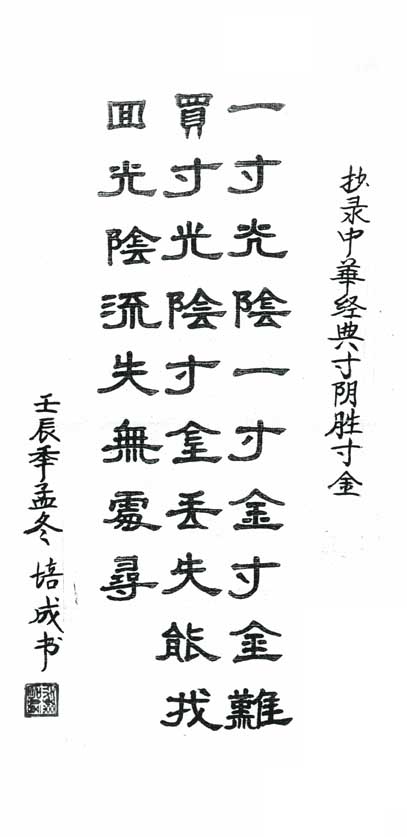 抄录中華经典寸阴胜寸金
一寸光陰一寸金寸金難
買寸光陰寸金丢失能找
回光陰流失無處尋
壬辰季孟冬 培成书